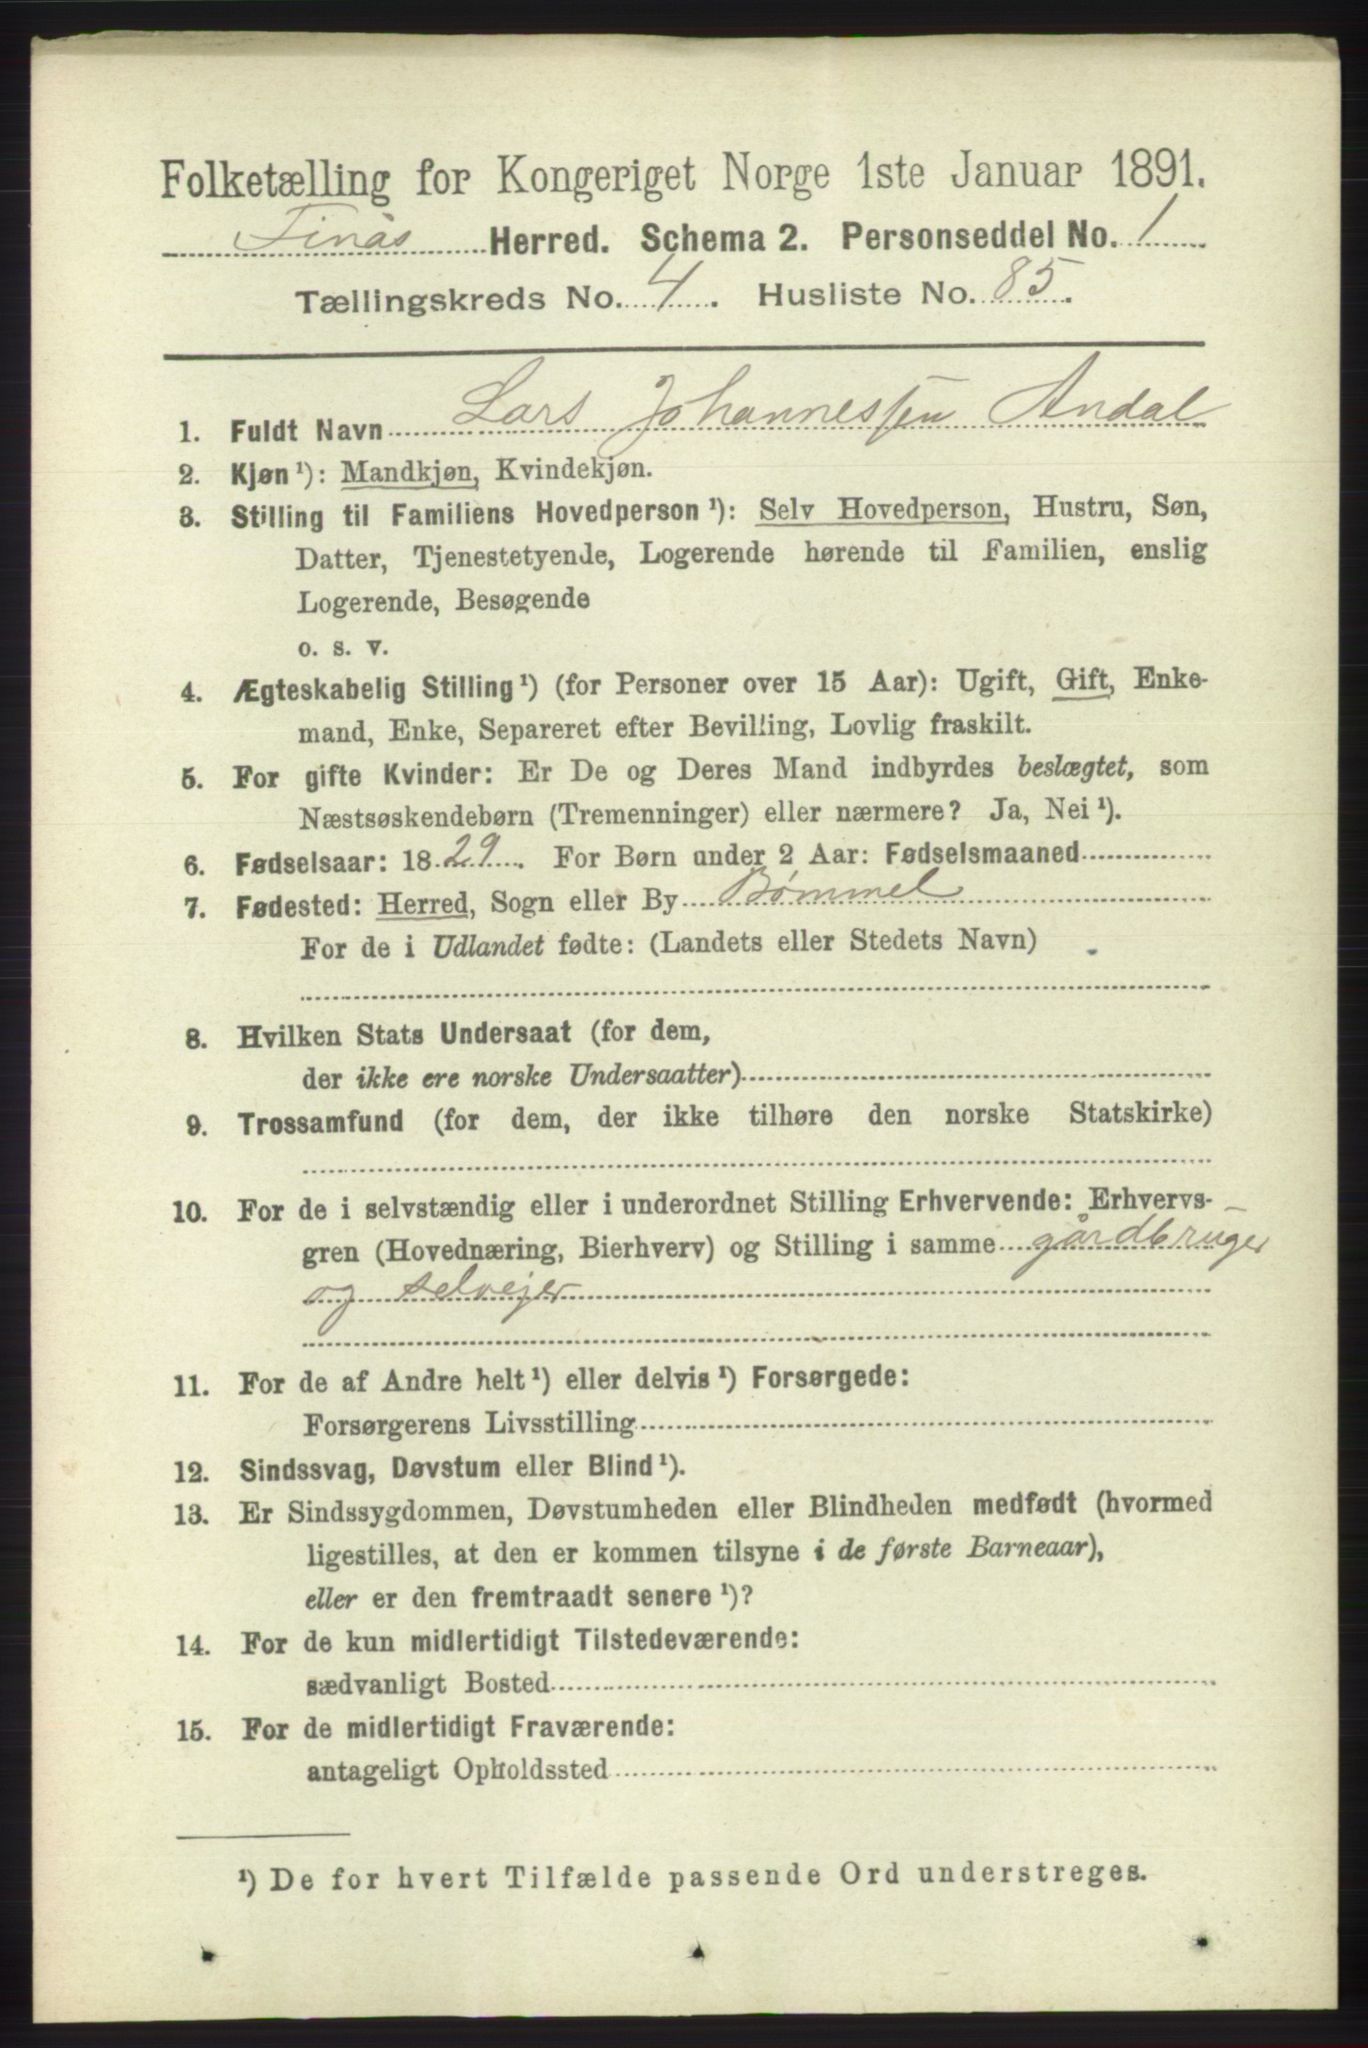 Folketælling for Kongeriget Norge 1ste Januar 1891.
Finås Herred. Schema 2. Personseddel No. 1
Tællingskreds No. 4. Husliste No. 85.
1. Fuldt Navn Lars Johannessen Andal
2. Kjøn ¹): Mandkjøn, Kvindekjøn.
3. Stilling til Familiens Hovedperson ¹): Selv Hovedperson, Hustru, Søn,
Datter, Tjenestetyende, Logerende hørende til Familien, enslig
Logerende, Besøgende
o. s. v.
4. Ægteskabelig Stilling ¹) (for Personer over 15 Aar): Ugift, Gift, Enke-
mand, Enke, Separeret efter Bevilling, Lovlig fraskilt.
5. For gifte Kvinder: Er De og Deres Mand indbyrdes beslægtet, som
Næstsøskendebørn (Tremenninger) eller nærmere? Ja, Nei ¹).
6. Fødselsaar: 1829. For Børn under 2 Aar: Fødselsmaaned
7. Fødested: Herred, Sogn eller By Bømmel
For de i Udlandet fødte: (Landets eller Stedets Navn)
8. Hvilken Stats Undersaat (for dem,
der ikke ere norske Undersaatter)
9. Trossamfund (for dem, der ikke tilhøre den norske Statskirke)
10. For de i selvstændig eller i underordnet Stilling Erhvervende: Erhvervs-
gren (Hovednæring, Bierhverv) og Stilling i samme gårdbruger
og selvejer
11. For de af Andre helt ¹) eller delvis ¹) Forsørgede:
Forsørgerens Livsstilling
12. Sindssvag, Døvstum eller Blind ¹).
13. Er Sindssygdommen, Døvstumheden eller Blindheden medfødt (hvormed
ligestilles, at den er kommen tilsyne i de første Barneaar),
eller er den fremtraadt senere ¹)?
14. For de kun midlertidigt Tilstedeværende:
sædvanligt Bosted
15. For de midlertidigt Fraværende:
antageligt Opholdssted
¹) De for hvert Tilfælde passende Ord understreges.